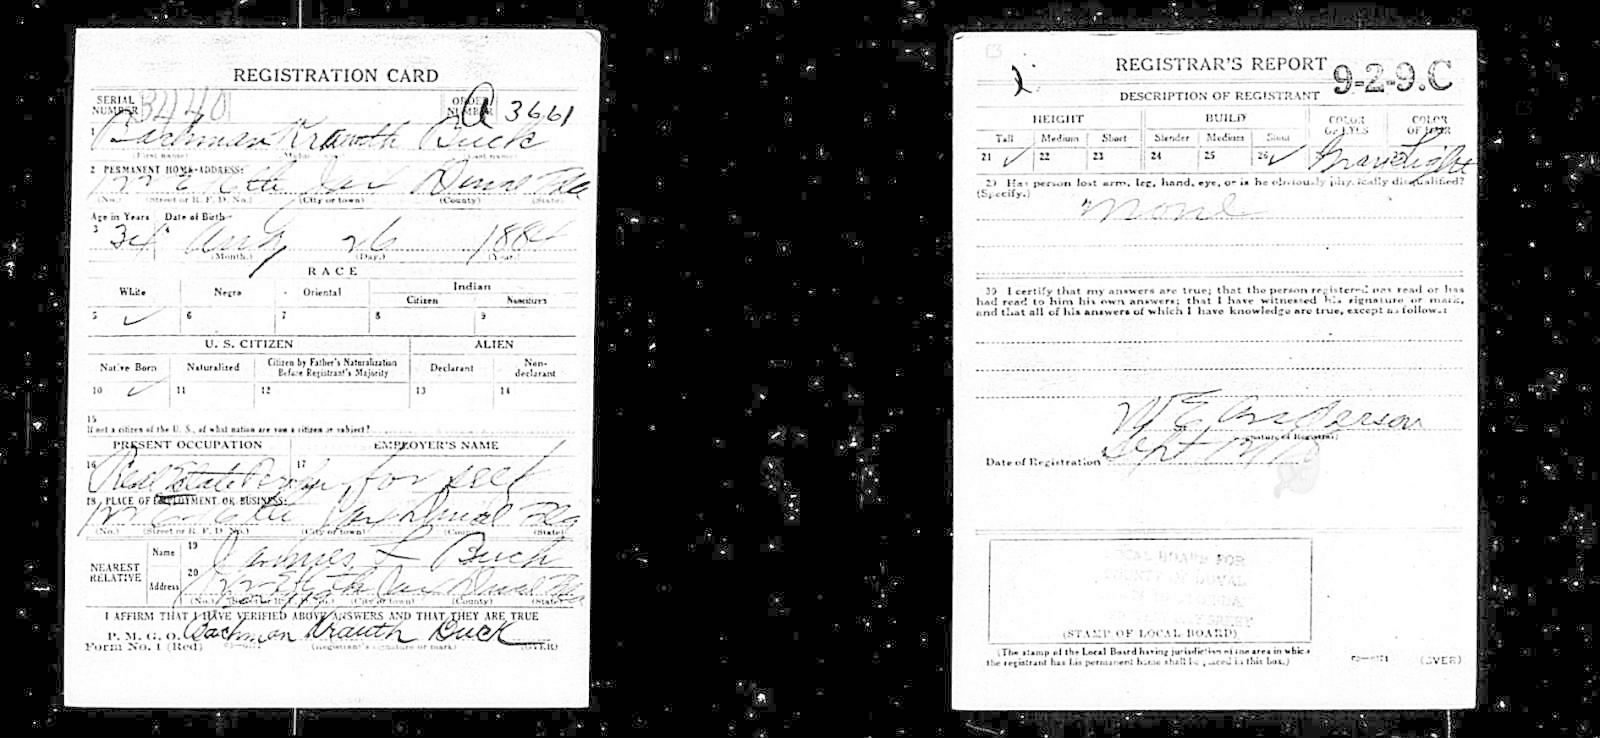 REGISTRATION CARD
SERIAL NUMBER 3440 ORDER NUMBER A 3661
1 Bachman Krauth Buck
(First name) (Middle name) (Last name)
2 PERMANENT HOME ADDRESS:
Jax Duval Fla
(No.) (Street or R. F. D. No.) (City or town) (County) (State)
Age in Years Date of Birth
3 34 4 Aug 26 1884
(Month.) (Day.) (Year.)
RACE
White Negro Oriental Indian
Citizen Noncitizen
5 ✓ 6 7 8 9
U. S. CITIZEN ALIEN
Native Born Naturalized Citizen by Father's Naturalization Before Registrant's Majority Declarant Non-declarant
10 ✓ 11 12 13 14
15
If not a citizen of the U. S., of what nation are you a citizen or subject?
PRESENT OCCUPATION EMPLOYER'S NAME
16 Real Estate 17 for self
18 PLACE OF EMPLOYMENT OR BUSINESS:
Jax Duval Fla
(No.) (Street or R. F. D. No.) (City or town) (County) (State)
NEAREST RELATIVE
Name 19 L Buck
Address 20 Jax Duval Fla
(No.) (Street or R. F. D. No.) (City or town) (County) (State)
I AFFIRM THAT I HAVE VERIFIED ABOVE ANSWERS AND THAT THEY ARE TRUE
P. M. G. O.
Form No. 1 (Red) Bachman Krauth Buck
(Registrant's signature or mark) (OVER)
REGISTRAR'S REPORT 9-2-9.C
DESCRIPTION OF REGISTRANT
HEIGHT BUILD COLOR OF EYES COLOR OF HAIR
Tall Medium Short Slender Medium Stout
21 ✓ 22 23 24 25 26 ✓ Light
29 Has person lost arm, leg, hand, eye, or is he obviously physically disqualified?
(Specify.) None
30 I certify that my answers are true; that the person registered has read or has
had read to him his own answers; that I have witnessed his signature or mark,
and that all of his answers of which I have knowledge are true, except as follows:
W E Anderson
(Signature of Registrar)
Date of Registration Sept 12
LOCAL BOARD FOR
COUNTY OF DUVAL
(STAMP OF LOCAL BOARD)
(The stamp of the Local Board having jurisdiction of the area in which
the registrant has his permanent home shall be placed in this box.)
(OVER)